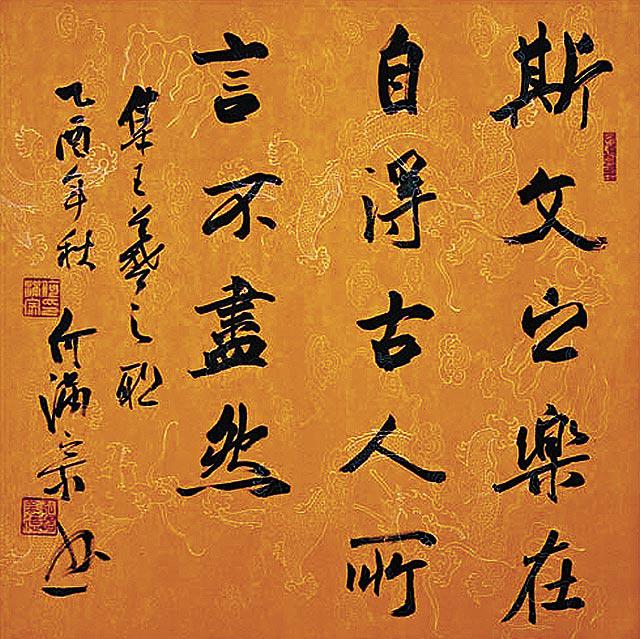 斯文之樂在
自得古人所
言不盡然
集王羲之聯
乙酉年秋 何滿宗書